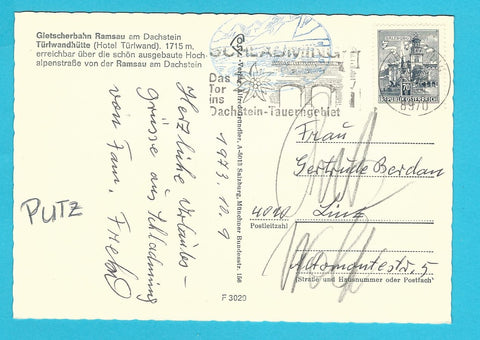 Gletscherbahn Ramsau am Dachstein
Türlwandhütte (Hotel Türlwand). 1715 m,
erreichbar über die schön ausgebaute Hoch-
alpenstraße von der Ramsau am Dachstein
SCHLADMING
Das
Tor
ins
Dachstein-Tauerngebiet
8970
REPUBLIK ÖSTERREICH
1973. 10. 9
Herzliche Urlaubs-
grüsse aus Schladming
von Fam.
PUTZ
Frau
Gertrude Berdan
4020 Linz
Postleitzahl
5
(Straße und Hausnummer oder Postfach)
A-5013 Salzburg, Münchner Bundesstr. 156
F 3020